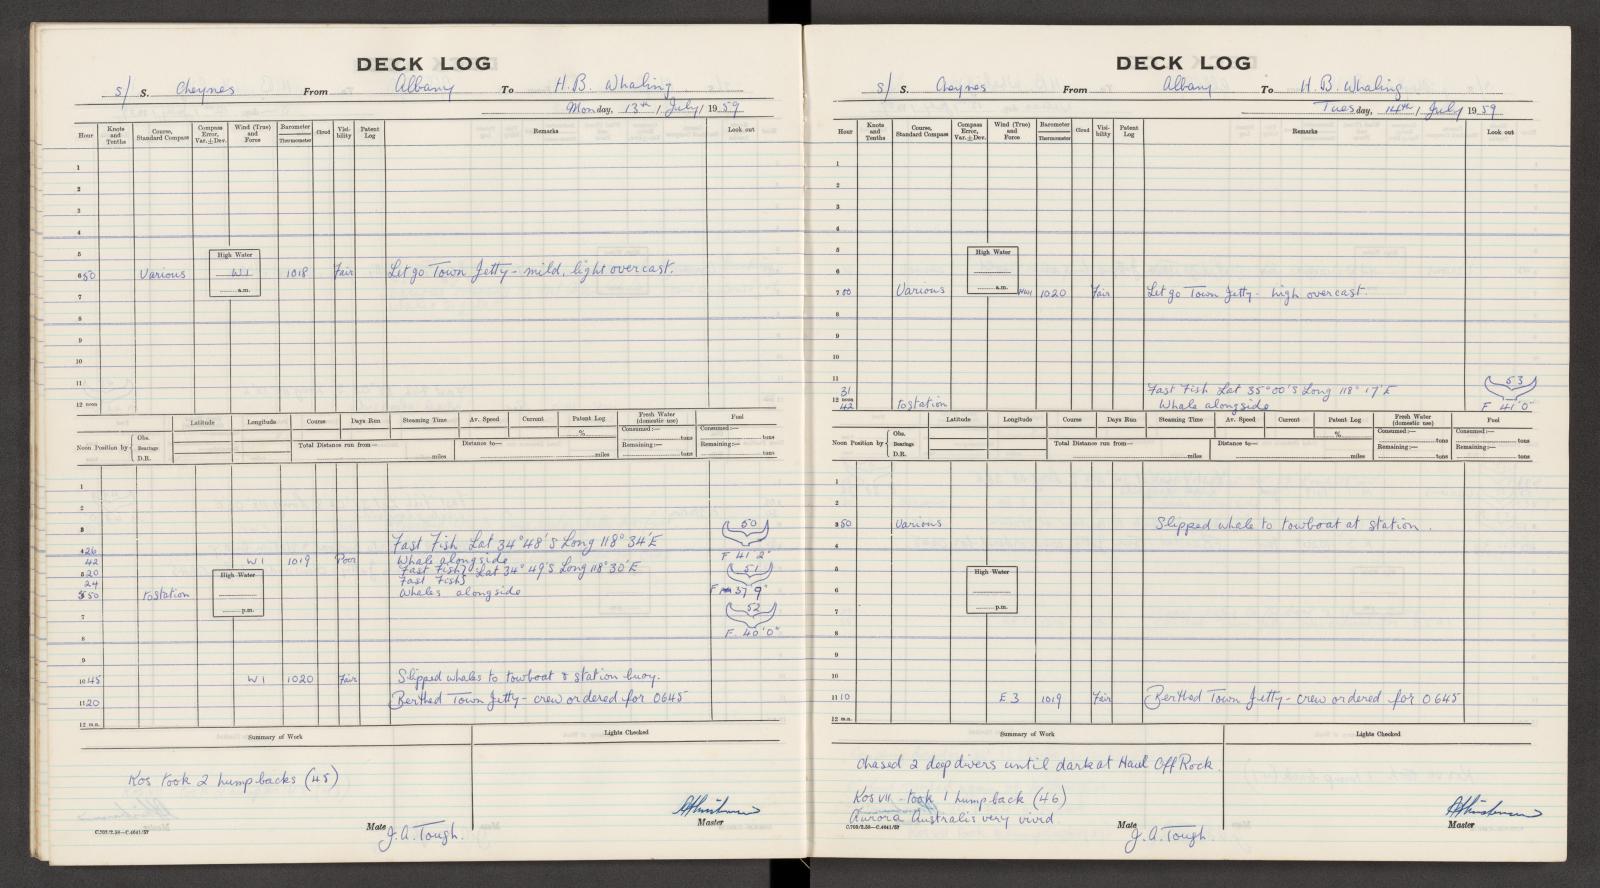 DECK LOG
s/ S. Cheynes From Albany To H.B. Whaling
Monday, 13th, July, 1959
Hour Knots and Tenths Course, Standard Compass Compass Error, Var.±Dev. Wind (True) and Force Barometer Thermometer Cloud Visibility Patent Log Remarks Look out
1
2
3
4
5
High Water
6 50 Various W1 1018 Fair Let go Town Jetty - mild, light overcast.
a.m.
7
8
9
10
11
12 noon
Latitude Longitude Course Days Run Steaming Time Av. Speed Current Patent Log Fresh Water (domestic use) Fuel
% Consumed:— tons Consumed:—
Noon Position by Obs. Bearings D.R. Total Distance run from— miles Distance to— miles Remaining:— tons Remaining:— tons
1
2
3 50
4 26 Fast Fish Lat 34°48'S Long 118°34'E
42 W1 1019 Poor Whale alongside F 41'2"
5 20 Fast Fish} Lat 34°49'S Long 118°30'E 51
24 Fast Fish}
High Water
5 50 to station Whales alongside F 37'9"
52
p.m.
7
8 F. 40'0"
9
10 45 W1 1020 Fair Slipped whales to towboat & station buoy.
11 20 Berthed Town Jetty - crew ordered for 0645
12 m.n.
Summary of Work Lights Checked
Kos took 2 humpbacks (45)
Master
Mate J.A. Tough.
C.702/2.58—C.4641/57
DECK LOG
s/ S. Cheynes From Albany To H.B. Whaling
Tuesday, 14th, July 1959
Hour Knots and Tenths Course, Standard Compass Compass Error, Var.±Dev. Wind (True) and Force Barometer Thermometer Cloud Visibility Patent Log Remarks Look out
1
2
3
4
5
High Water
6
a.m.
7 00 Various NW1 1020 Fair Let go Town Jetty - high overcast.
8
9
10
11
31 Fast Fish Lat 35°00'S Long 118°17'E 53
12 noon
42 to station Whale alongside F 41'0"
Latitude Longitude Course Days Run Steaming Time Av. Speed Current Patent Log Fresh Water (domestic use) Fuel
% Consumed:— tons Consumed:—
Noon Position by Obs. Bearings D.R. Total Distance run from— miles Distance to— miles Remaining:— tons Remaining:— tons
1
2
3 50 Various Slipped whale to towboat at station.
4
5
High Water
6
p.m.
7
8
9
10
11 10 E 3 1019 Fair Berthed Town Jetty - crew ordered for 0645
12 m.n.
Summary of Work Lights Checked
Chased 2 deep divers until dark at Haul Off Rock.
Kos VII - took 1 humpback (46)
Aurora Australis very vivid
Master
Mate J.A. Tough.
C.702/2.58—C.4641/57